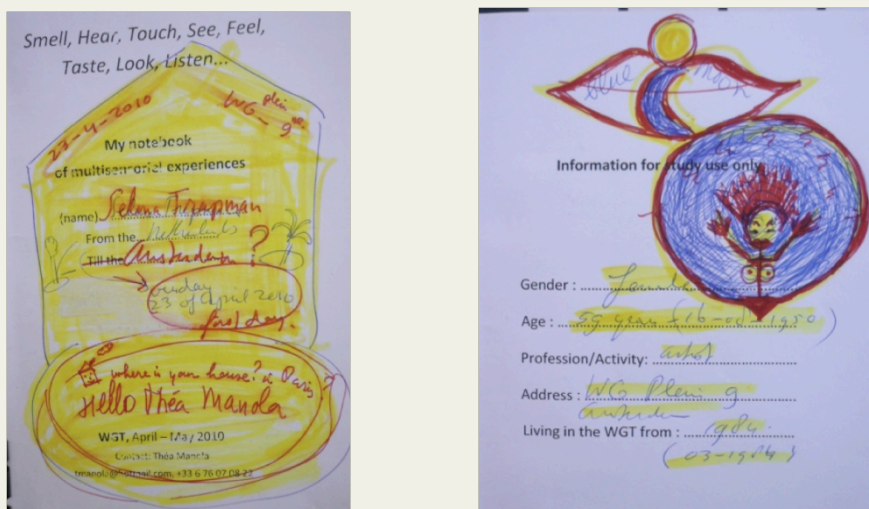 Smell, Hear, Touch, See, Feel,
Taste, Look, Listen...
23-4-2010
WG-plein 9
My notebook
of multisensorial experiences
(name) Selma
From the Netherlands
Till the Amsterdam ?
23 of April 2010
first day.
where is your house? in Paris ?
Hello Théa Manola
WGT, April – May 2010
Contact: Théa Manola
tmanola@hotmail.com, +33 6 76 07 08 22
blue moon
Information for study use only
Gender :
Age : 59 year (16-08-1950)
Profession/Activity: artist
Address : WG Plein 9
Living in the WGT from : 1984.
(03-1984)